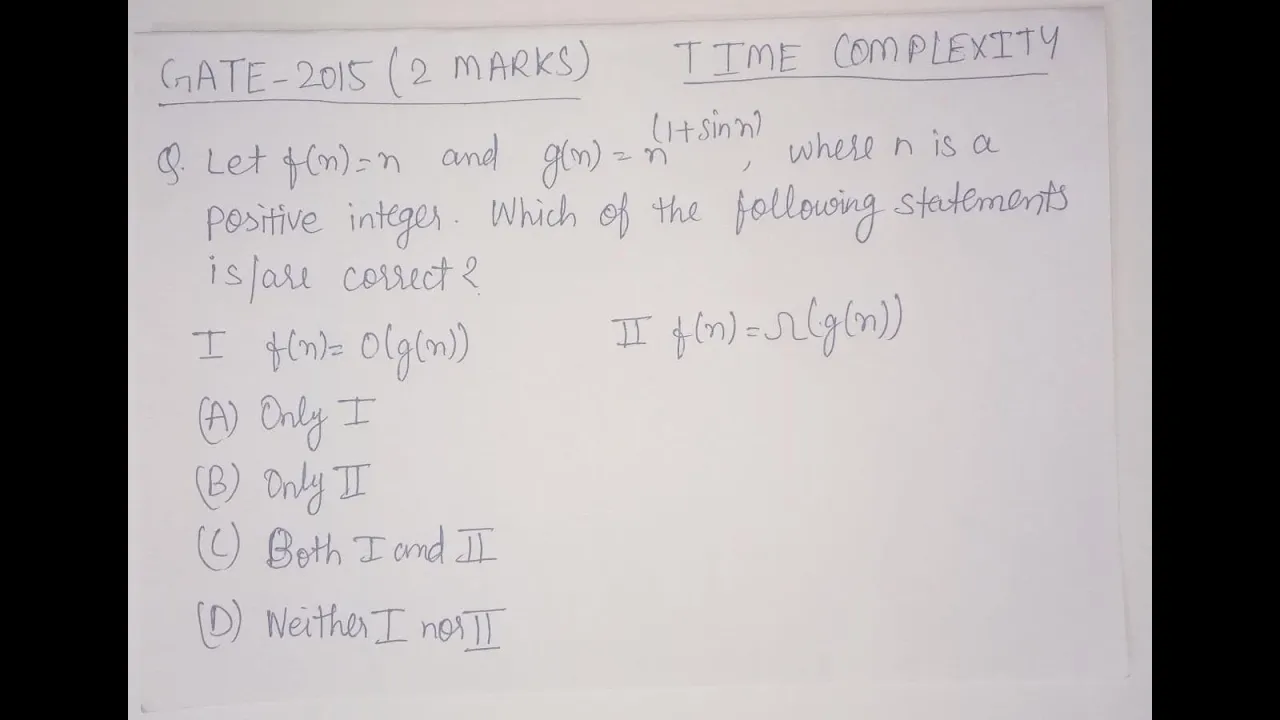 GATE-2015 (2 MARKS) TIME COMPLEXITY
Q. Let f(n)=n and g(n)=n^(1+sin n), where n is a
positive integer. Which of the following statements
is/are correct?
I f(n)= O(g(n)) II f(n)=Ω(g(n))
(A) Only I
(B) Only II
(C) Both I and II
(D) Neither I nor II